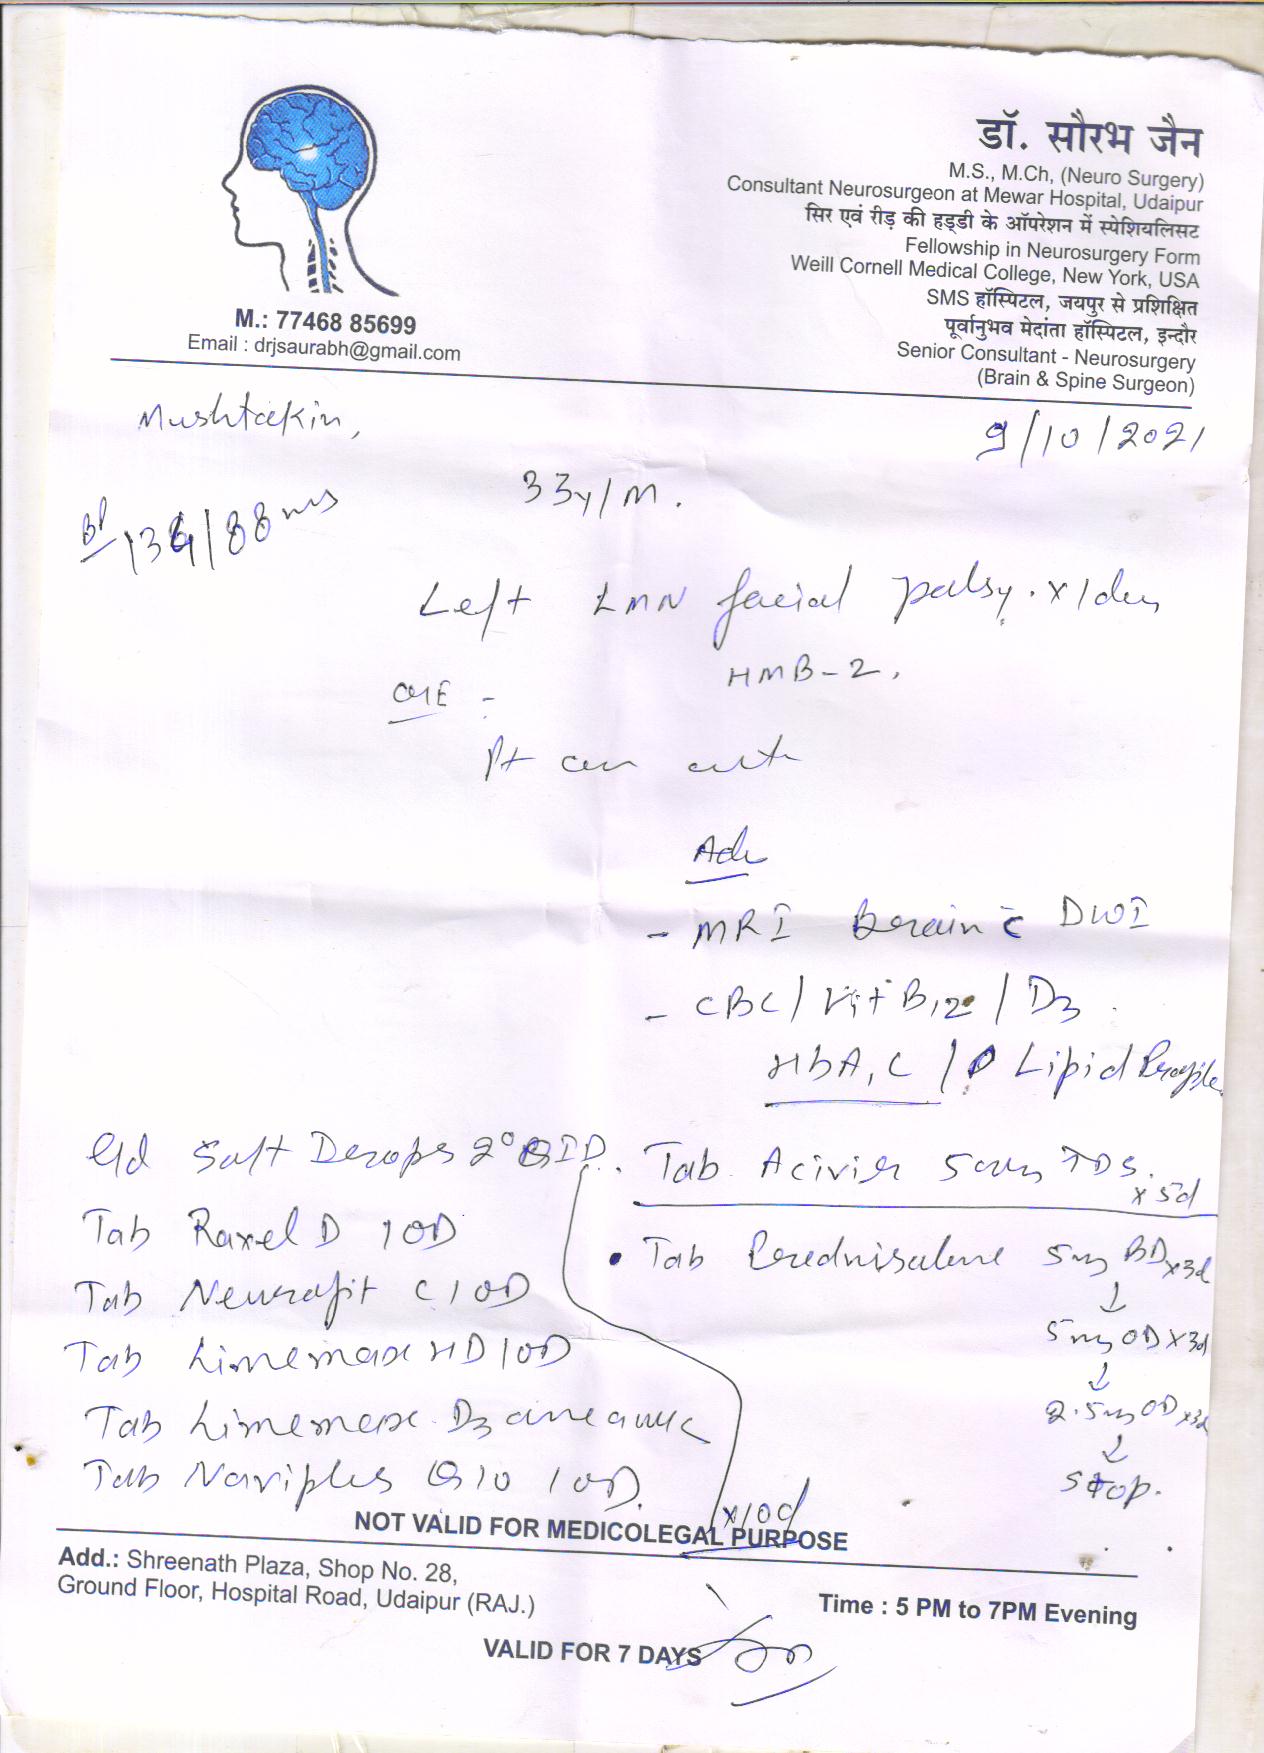 डॉ. सौरभ जैन
M.S., M.Ch, (Neuro Surgery)
Consultant Neurosurgeon at Mewar Hospital, Udaipur
सिर एवं रीड़ की हड्डी के ऑपरेशन में स्पेशियलिसट
Fellowship in Neurosurgery Form
Weill Cornell Medical College, New York, USA
SMS हॉस्पिटल, जयपुर से प्रशिक्षित
पूर्वानुभव मेदांता हॉस्पिटल, इन्दौर
Senior Consultant - Neurosurgery
(Brain & Spine Surgeon)
M.: 77468 85699
Email : drjsaurabh@gmail.com
Mushtakin,
9/10/2021
33y/M.
BP
Left LMN facial palsy. x 1 day
HMB-2.
O/E -
Pt
Adv
- MRI Brain c̄ DWI
- CBC / Vit B12 / D3
HbA1C / Lipid Profile
Soft Drops 2° QID.
Tab Acivir TDS x 5d
Tab Raxel D 1 OD
Tab Prednisolone 5mg BD x 3d
↓
Tab Neurofit C 1 OD
5mg OD x 3d
↓
Tab Limemax HD 1 OD
2.5mg OD x 3d
↓
Tab Limemax D3
Stop.
Tab Naviplus Q10 1 OD.
x 10d
NOT VALID FOR MEDICOLEGAL PURPOSE
Add.: Shreenath Plaza, Shop No. 28,
Ground Floor, Hospital Road, Udaipur (RAJ.)
Time : 5 PM to 7PM Evening
VALID FOR 7 DAYS